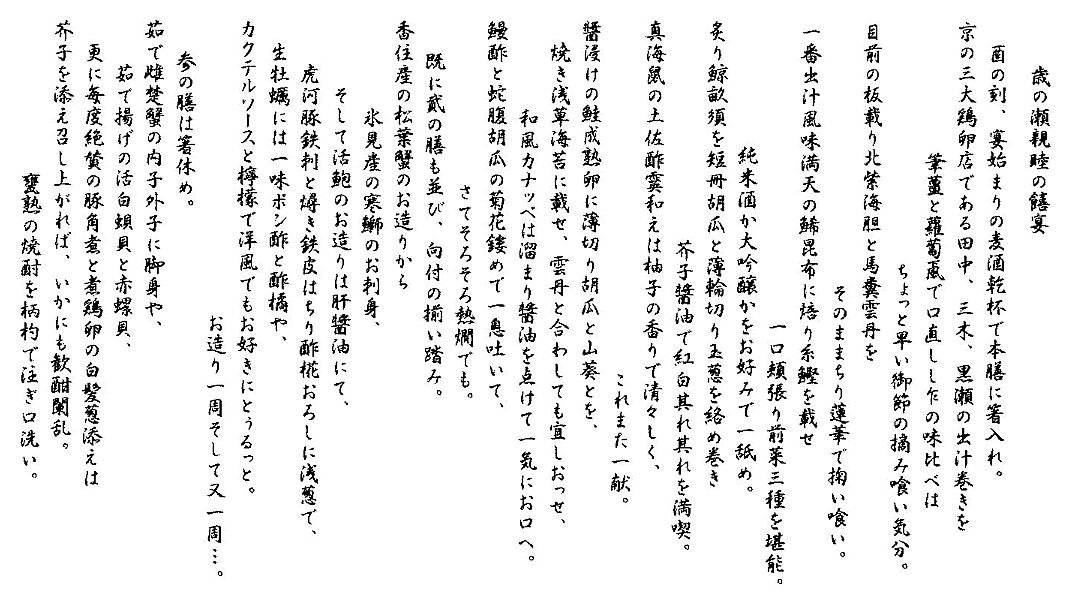 歳の瀬親睦の饍宴
酉の刻、宴始まりの麦酒乾杯で本膳に箸入れ。
京の三大鶏卵店である田中、三木、黒瀬の出汁巻きを
筆薑と蘿蔔風で口直しし乍の味比べは
ちょっと早い御節の摘み喰い気分。
目前の板載り北紫海胆と馬糞雲丹を
そのままちり蓮華で掬い喰い。
一番出汁風味満天の鯑昆布に焙り糸鰹を載せ
一口頬張り前菜三種を堪能。
純米酒か大吟醸かをお好みで一舐め。
炙り鯨畝須を短冊胡瓜と薄輪切り玉葱を絡め巻き
芥子醬油で紅白其れ其れを満喫。
真海鼠の土佐酢霙和えは柚子の香りで清々しく、
これまた一献。
醬浸けの鮭成熟卵に薄切り胡瓜と山葵とを、
焼き浅草海苔に載せ、雲丹と合わしても宜しおっせ、
和風カナッペは溜まり醬油を点けて一気にお口へ。
鰻酢と蛇腹胡瓜の菊花鏤めで一息吐いて、
さてそろそろ熱燗でも。
既に貳の膳も並び、向付の揃い踏み。
香住産の松葉蟹のお造りから
氷見産の寒鰤のお刺身、
そして活鮑のお造りは肝醬油にて、
虎河豚鉄刺と燖き鉄皮はちり酢椛おろしに浅葱で、
生牡蠣には一味ポン酢と酢橘や、
カクテルソースと檸檬で洋風でもお好きにとぅるっと。
お造り一周そして又一周…。
参の膳は箸休め。
茹で雌楚蟹の内子外子に脚身や、
茹で揚げの活白蛽貝と赤螺貝、
更に毎度絶賛の豚角煮と煮鶏卵の白髪葱添えは
芥子を添え召し上がれば、いかにも歓酣闌乱。
甕熟の焼酎を柄杓で注ぎ口洗い。